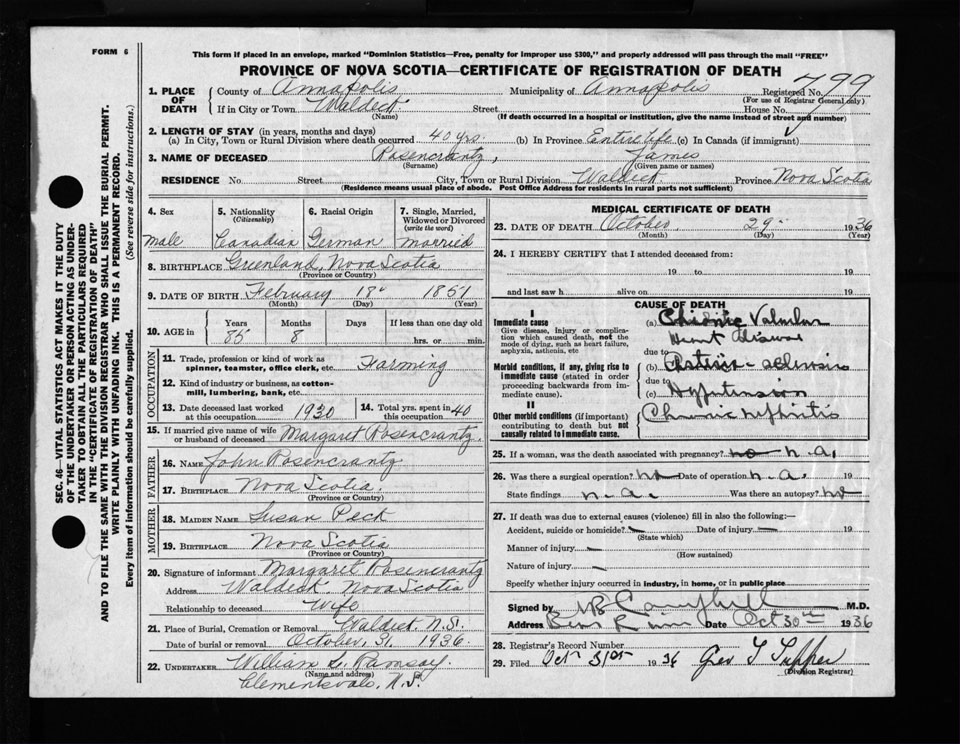 FORM 6
This form if placed in an envelope, marked "Dominion Statistics—Free, penalty for improper use $300," and properly addressed will pass through the mail "FREE"
PROVINCE OF NOVA SCOTIA—CERTIFICATE OF REGISTRATION OF DEATH
SEC. 46—VITAL STATISTICS ACT MAKES IT THE DUTY
OF THE UNDERTAKER OR PERSON ACTING AS UNDER-
TAKER TO OBTAIN ALL THE PARTICULARS REQUIRED
IN THE "CERTIFICATE OF REGISTRATION OF DEATH"
AND TO FILE THE SAME WITH THE DIVISION REGISTRAR WHO SHALL ISSUE THE BURIAL PERMIT.
WRITE PLAINLY WITH UNFADING INK. THIS IS A PERMANENT RECORD.
Every item of information should be carefully supplied. (See reverse side for instructions.)
1. PLACE OF DEATH County of Annapolis Municipality of Annapolis Registered No. 799
(For use of Registrar General only)
If in City or Town Waldeck Street House No.
(Name) (If death occurred in a hospital or institution, give the name instead of street and number)
2. LENGTH OF STAY (in years, months and days)
(a) In City, Town or Rural Division where death occurred 40 yrs. (b) In Province Entire life (c) In Canada (if immigrant)
3. NAME OF DECEASED Rosencrantz, James
(Surname) (Given name or names)
RESIDENCE No Street City, Town or Rural Division Waldeck Province Nova Scotia
(Residence means usual place of abode. Post Office Address for residents in rural parts not sufficient)
4. Sex male
5. Nationality (Citizenship) Canadian
6. Racial Origin German
7. Single, Married, Widowed or Divorced (write the word) married
8. BIRTHPLACE Greenland, Nova Scotia
(Province or Country)
9. DATE OF BIRTH February 18 1851
(Month) (Day) (Year)
10. AGE in Years 85 Months 8 Days If less than one day old hrs. or min.
OCCUPATION
11. Trade, profession or kind of work as spinner, teamster, office clerk, etc. Farming
12. Kind of industry or business, as cotton-mill, lumbering, bank, etc.
13. Date deceased last worked at this occupation 1930
14. Total yrs. spent in this occupation 40
15. If married give name of wife or husband of deceased Margaret Rosencrantz.
FATHER
16. Name John Rosencrantz
17. Birthplace Nova Scotia.
(Province or Country)
MOTHER
18. Maiden Name Susan Peck
19. Birthplace Nova Scotia
(Province or Country)
20. Signature of informant Margaret Rosencrantz
Address Waldeck. Nova Scotia
Relationship to deceased Wife
21. Place of Burial, Cremation or Removal Waldeck N.S.
Date of burial or removal October, 31, 1936.
22. UNDERTAKER William G. Ramsay.
(Name and address)
Clementsvale, N.S.
MEDICAL CERTIFICATE OF DEATH
23. DATE OF DEATH October 29 1936
(Month) (Day) (Year)
24. I HEREBY CERTIFY that I attended deceased from:
19 to 19
and last saw h alive on 19
CAUSE OF DEATH
I
Immediate cause
Give disease, injury or complication which caused death, not the mode of dying, such as heart failure, asphyxia, asthenia, etc
(a) Chronic Valvular Heart disease
due to
Morbid conditions, if any, giving rise to immediate cause (stated in order proceeding backwards from immediate cause).
(b) Arterio-sclerosis
due to
(c) Hypertension
II
Other morbid conditions (if important) contributing to death but not causally related to immediate cause.
Chronic nephritis
25. If a woman, was the death associated with pregnancy? no n.a.
26. Was there a surgical operation? no Date of operation n.a. 19
State findings n.a. Was there an autopsy? no
27. If death was due to external causes (violence) fill in also the following:—
Accident, suicide or homicide? — Date of injury — 19
(State which)
Manner of injury —
(How sustained)
Nature of injury —
Specify whether injury occurred in industry, in home, or in public place
Signed by Campbell M.D.
Address Bear River Date Oct 30th 1936
28. Registrar's Record Number
29. Filed Oct 31st 1936 Geo T Tupper
(Division Registrar)